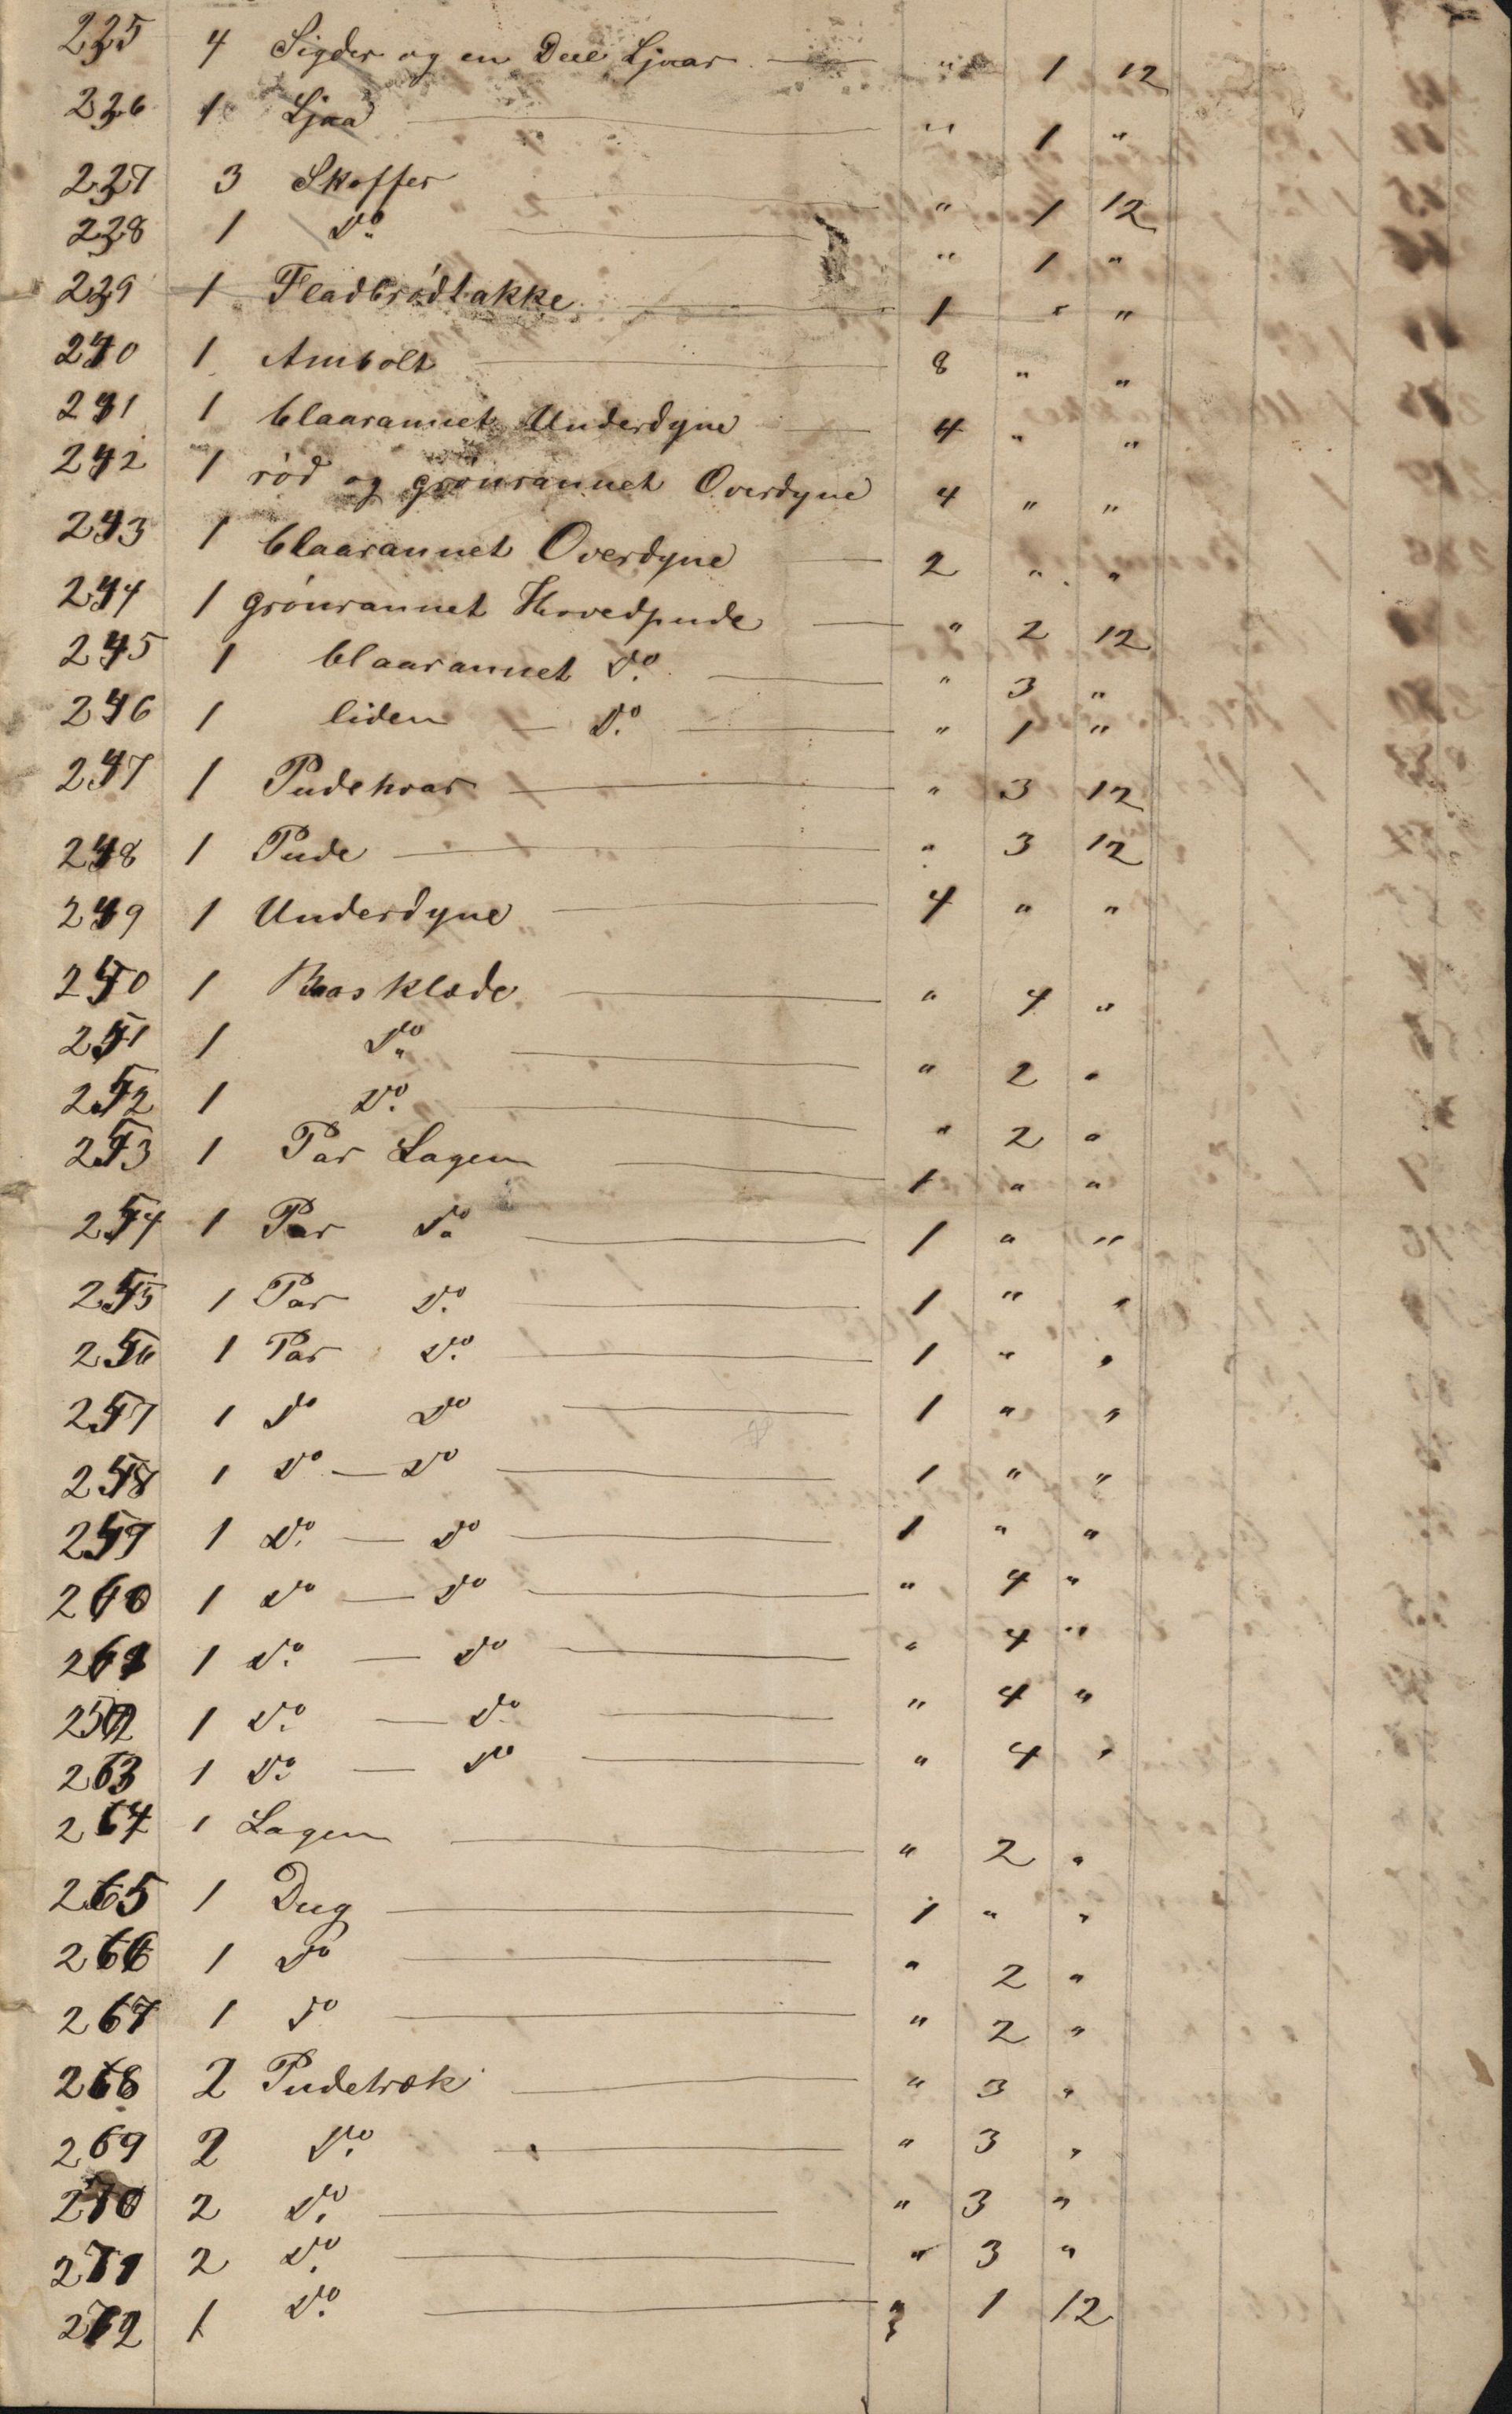 235 4 Sigder og en Deel Ljaar — " 1 12
236 1 Ljaa — " 1 "
237 3 Skoffer — " 1 12
238 1 Do — " 1 "
239 1 Fladbrödtakke — 1 " "
240 1 Ambolt — 8 " "
241 1 blaarannet Underdyne — 4 " "
242 1 röd og grönrannet Overdyne 4 " "
243 1 blaarannet Overdyne — 2 " "
244 1 grönrannet Hovedpude — " 2 12
245 1 blaarannet Do. — " 3 "
246 1 liden — Do. — " 1 "
247 1 Pudehvar — " 3 12
248 1 Pude — " 3 12
249 1 Underdyne — 4 " "
250 1 klæde — " 4 "
251 1 Do — " 2 "
252 1 Do. — " 2 "
253 1 Par Lagen — 1 " "
254 1 Par Do — 1 " "
255 1 Par Do. — 1 " "
256 1 Par Do. — 1 " "
257 1 Do Do — 1 " "
258 1 Do — Do — 1 " "
259 1 Do. — Do — 1 " "
260 1 Do — Do — " 4 "
261 1 Do. — Do — " 4 "
262 1 Do. — Do. — " 4 "
263 1 Do. — Do — " 4 "
264 1 Lagen — " 2 "
265 1 Dug — 1 " "
266 1 Do — " 2 "
267 1 Do — " 2 "
268 2 Pudetræk — " 3 "
269 2 Do. — " 3 "
270 2 Do. — " 3 "
271 2 Do. — " 3 "
272 1 Do. — " 1 12